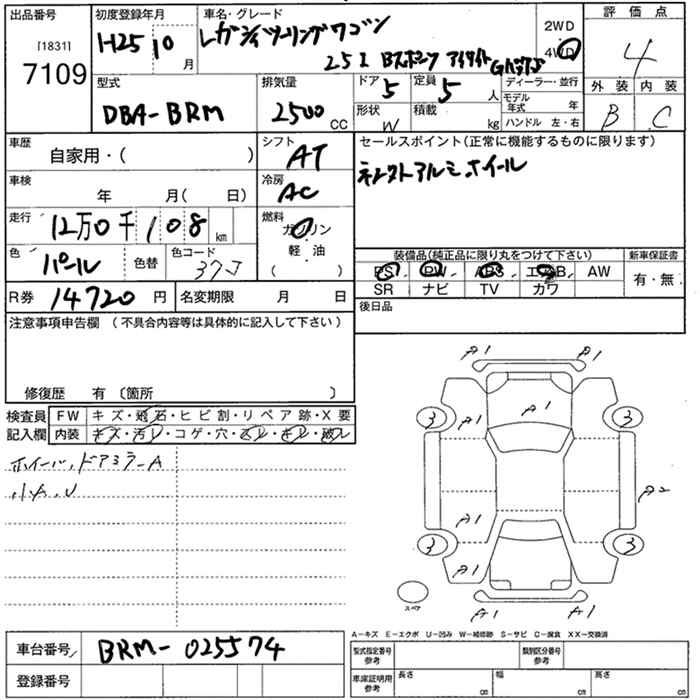 出品番号 [1831] 7109
初度登録年月 H25 10月
車名・グレード レガシィツーリングワゴン
25i Bスポーツ アイサイト Gパッケージ
2WD
4WD
評価点 4
外装 内装
B C
型式 DBA-BRM
排気量 2500 CC
ドア 5
定員 5 人
形状 W
積載 kg
ディーラー・並行
モデル年式 年
ハンドル 左・右
車歴 自家用・( )
シフト AT
セールスポイント(正常に機能するものに限ります)
車検 年 月( 日)
冷房 AC
走行 12万0千108km
燃料 ガソリン・軽・油 ( )
色 パール 色替
色コード 37J
装備品(純正品に限り丸をつけて下さい)
新車保証書
PS PW ABS エアB AW
有・無
SR ナビ TV カワ
R券 14720 円
名変期限 月 日
後日品
注意事項申告欄 (不具合内容等は具体的に記入して下さい)
修復歴 有 〔箇所 〕
検査員記入欄
FW キズ・飛石・ヒビ割・リペア跡・X要
内装 キズ・汚レ・コゲ・穴・
ホイール、ドアミラーA
小A、U
A1 A1
A1 A1
3 3
A2
A1
3 3
A1 A1
スペア
A1 A1
A-キズ E-エクボ U-凹み W-補修跡 S-サビ C-腐食 XX-交換済
車台番号 BRM-025574
型式指定番号 参考
類別区分番号 参考
登録番号
車庫証明用 参考
長さ cm
幅 cm
高さ cm